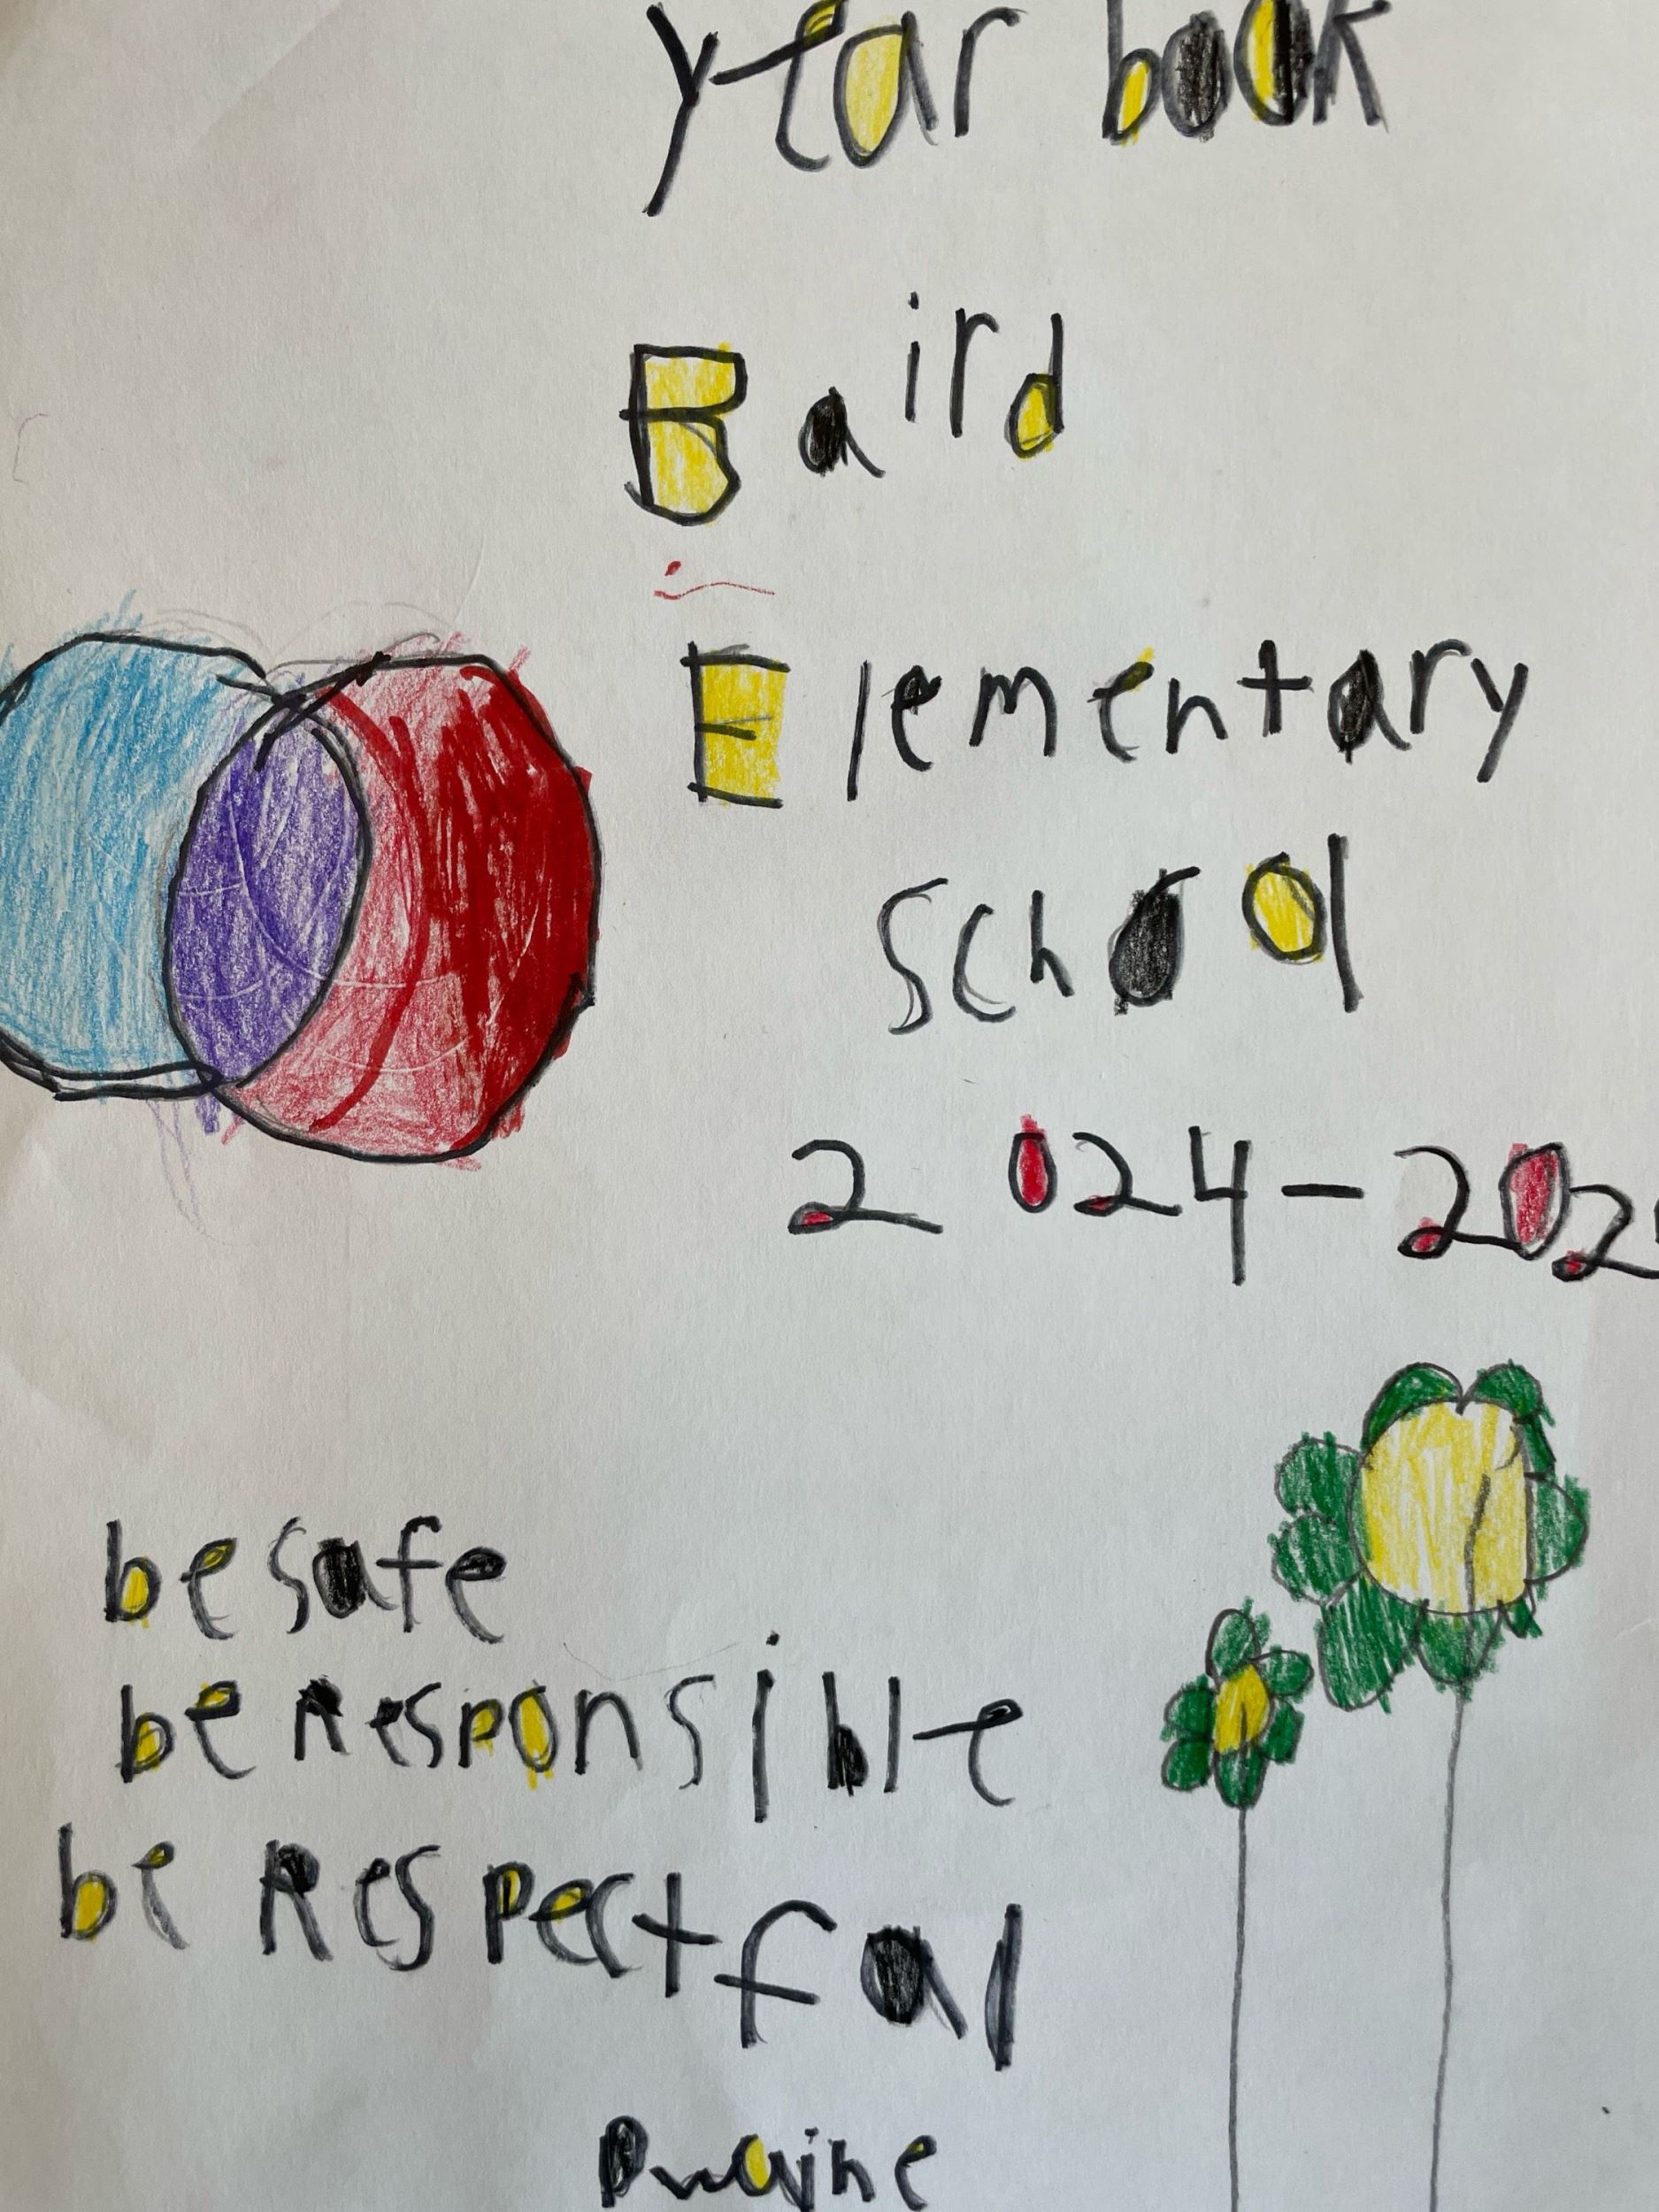 year book
Baird
Elementary
school
2024-202
be safe
be Responsible
be Respectfal